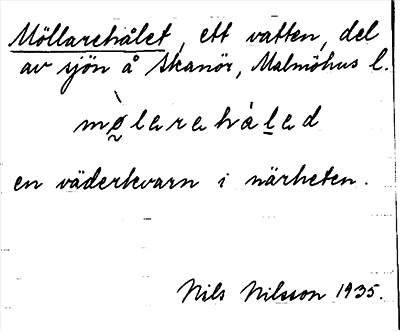 Möllarehålet, ett vatten, del
av sjön å Skanör, Malmöhus l.
mö̀larehåḷad
en väderkvarn i närheten.
Nils Nilsson 1935.